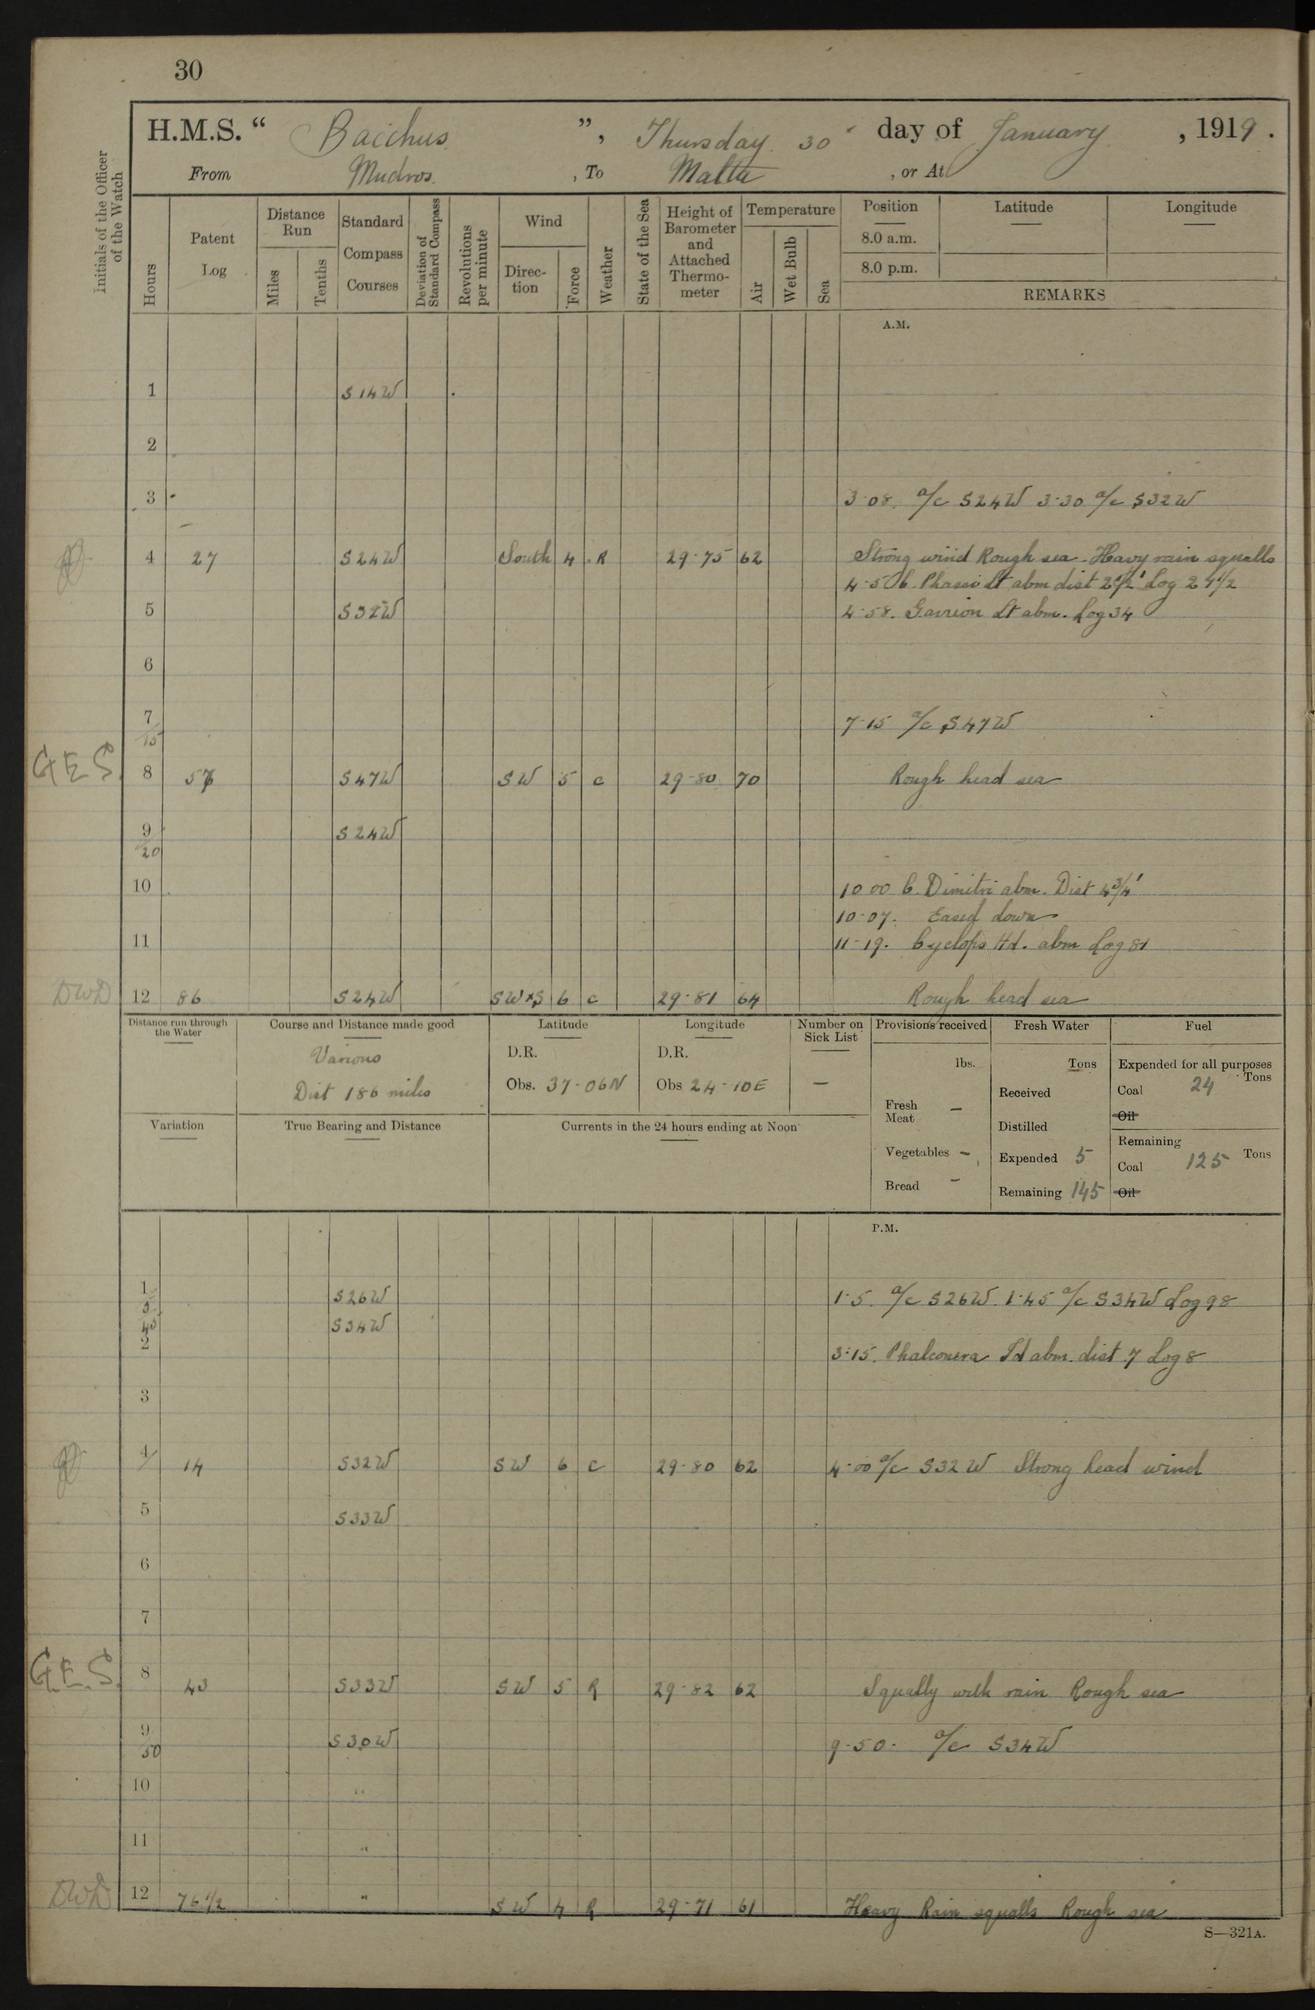 30
H.M.S. “ Bacchus ”, Thursday 30 day of January , 1919 .
From Mudros , To Malta , or At
Initials of the Officer of the Watch
Hours
Patent Log
Distance Run
Miles
Tenths
Standard Compass Courses
Deviation of Standard Compass
Revolutions per minute
Wind
Direc-tion
Force
Weather
State of the Sea
Height of Barometer and Attached Thermo-meter
Temperature
Air
Wet Bulb
Sea
Position
Latitude
Longitude
8.0 a.m.
8.0 p.m.
REMARKS
A.M.
1 S14W
2
3 3·08. a/c S24W 3·30 a/c S32W
4 27 S24W South 4 R 29·75 62 Strong wind Rough sea. Heavy rain squalls
4·50 Lt abm dist 2 1/2' Log
5 S32W 4·58. Gavrion Lt abm. Log 34
6
7
15 7·15 a/c S47W
G.E.S. 8 57 S47W SW 5 c 29·80 70 Rough head sea
9 S24W
20
10 10·00 C. Dimitri abm. Dist 4 3/4'
10·07. Eased down
11 11·19. Cyclops Hd. abm Log 81
DWD 12 86 S24W SWxS 6 c 29·81 64 Rough head sea
Distance run through the Water
Course and Distance made good
Various
Dist 186 miles
Latitude
D.R.
Obs. 37-06N
Longitude
D.R.
Obs 24-10E
Number on Sick List
—
Provisions received
lbs.
Fresh Meat —
Vegetables —
Bread —
Fresh Water
Tons
Received
Distilled
Expended 5
Remaining 145
Fuel
Expended for all purposes
Tons
Coal 24
Oil
Remaining
Coal 125 Tons
Oil
Variation
True Bearing and Distance
Currents in the 24 hours ending at Noon
P.M.
1 S26W 1·5. a/c S26W. 1·45 a/c S34W Log 98
5
45 S34W
2 3·15. Phalconera Id abm. dist 7 Log 8
3
4 14 S32W SW 6 c 29·80 62 4·00 a/c S32W Strong head wind
5 S33W
6
7
G.E.S. 8 43 S33W SW 5 R 29·82 62 Squally with rain Rough sea
9 S30W 9·50. a/c S34W
50
10 "
11 "
DWD 12 76 1/2 " SW 4 R 29·71 61 Heavy Rain squalls Rough sea
S—321A.